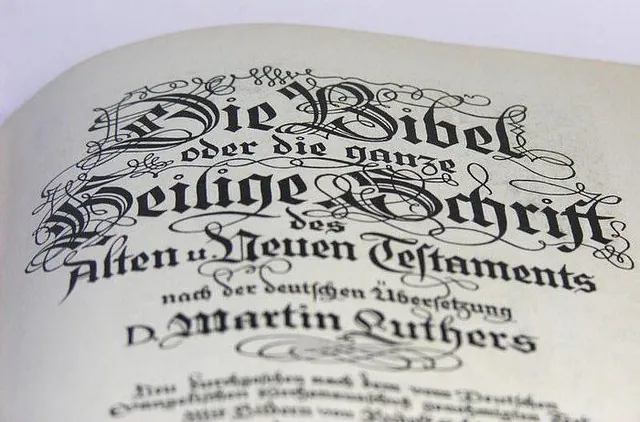 Die Bibel
oder die ganze
Heilige Schrift
des
Alten u. Neuen Testaments
nach der deutschen Übersetzung
D. Martin Luthers
Neu durchgesehen nach dem vom Deutschen
Evangelischen Kirchenausschuß genehmigten Text
Mit Bildern von